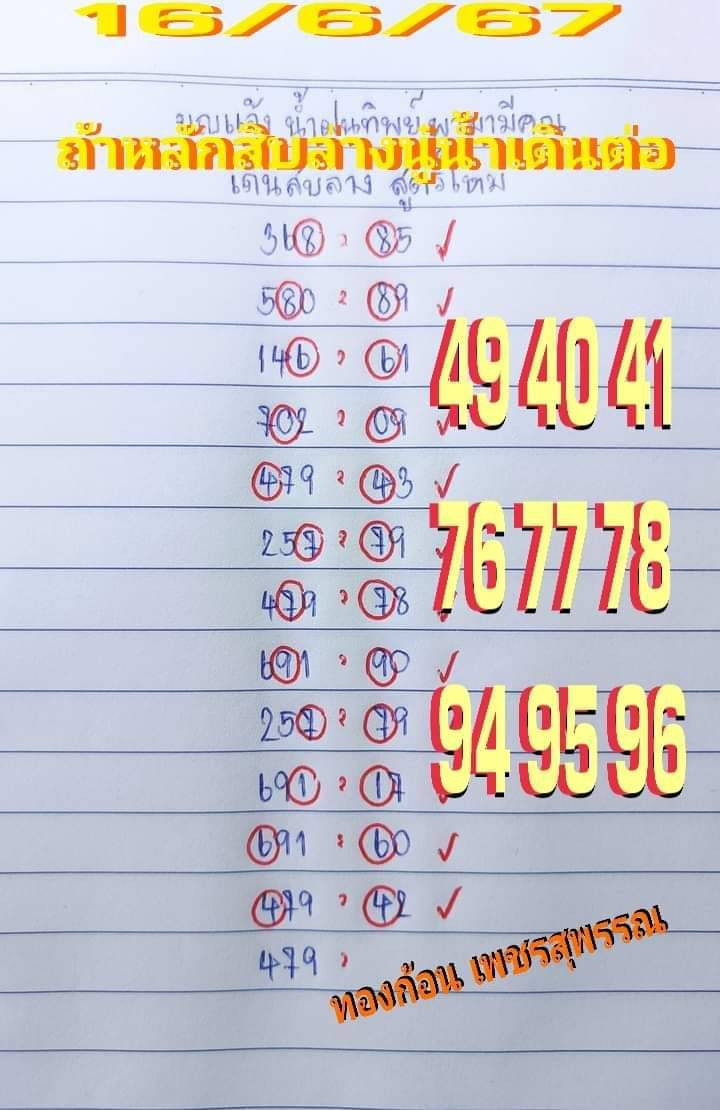 16/6/67
น้ำฝนทิพย์
ถ้าหลักสิบล่างนู๋น้ำเดินต่อ
เด่นสิบล่าง สูตรใหม่
368 = 85 ✓
580 = 89 ✓
146 = 61
702 = 09 ✓
49 40 41
479 = 43 ✓
257 = 79 ✓
76 77 78
479 = 78 ✓
691 = 90 ✓
257 = 79
94 95 96
691 = 17 ✓
691 = 60 ✓
479 = 42 ✓
479 =
ทองก้อน เพชรสุพรรณ